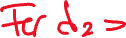 For d₂ >